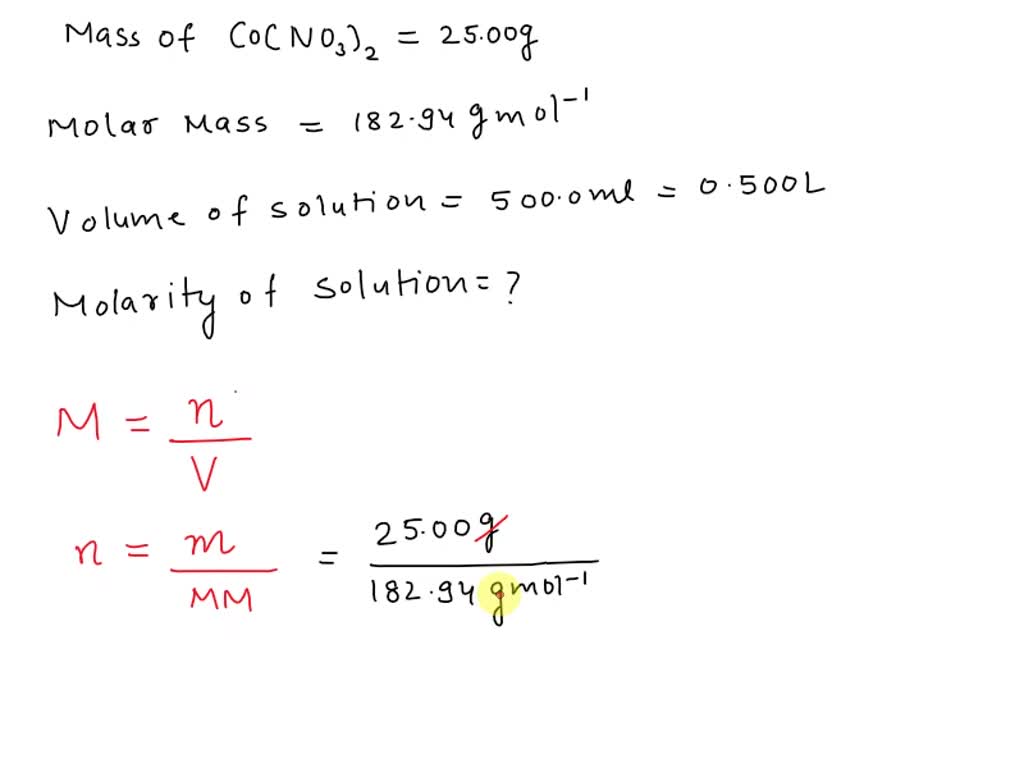 Mass of Co(NO₃)₂ = 25.00g
Molar Mass = 182.94 gmol⁻¹
Volume of solution = 500.0ml = 0.500L
Molarity of solution = ?
M = n / V
n = m / MM = 25.00g / 182.94 gmol⁻¹